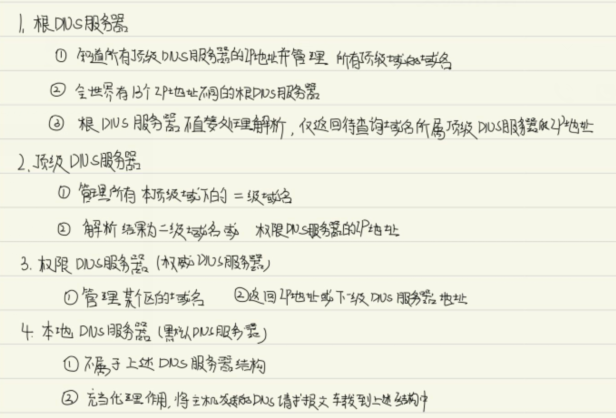 1. 根DNS服务器
① 知道所有顶级DNS服务器的IP地址并管理 所有顶级域和域名
② 全世界有13个IP地址不同的根DNS服务器
③ 根DNS服务器不直接处理解析，仅返回待查询域名所属顶级DNS服务器的IP地址
2. 顶级DNS服务器
① 管理所有本顶级域下的二级域名
② 解析结果为二级域名或 权限DNS服务器的IP地址
3. 权限DNS服务器 (权威DNS服务器)
① 管理某个区的域名 ② 返回IP地址或下一级DNS服务器地址
4. 本地DNS服务器 (默认DNS服务器)
① 不属于上述DNS服务器结构
② 充当代理作用，将主机发起的DNS请求报文 转发到上述结构中